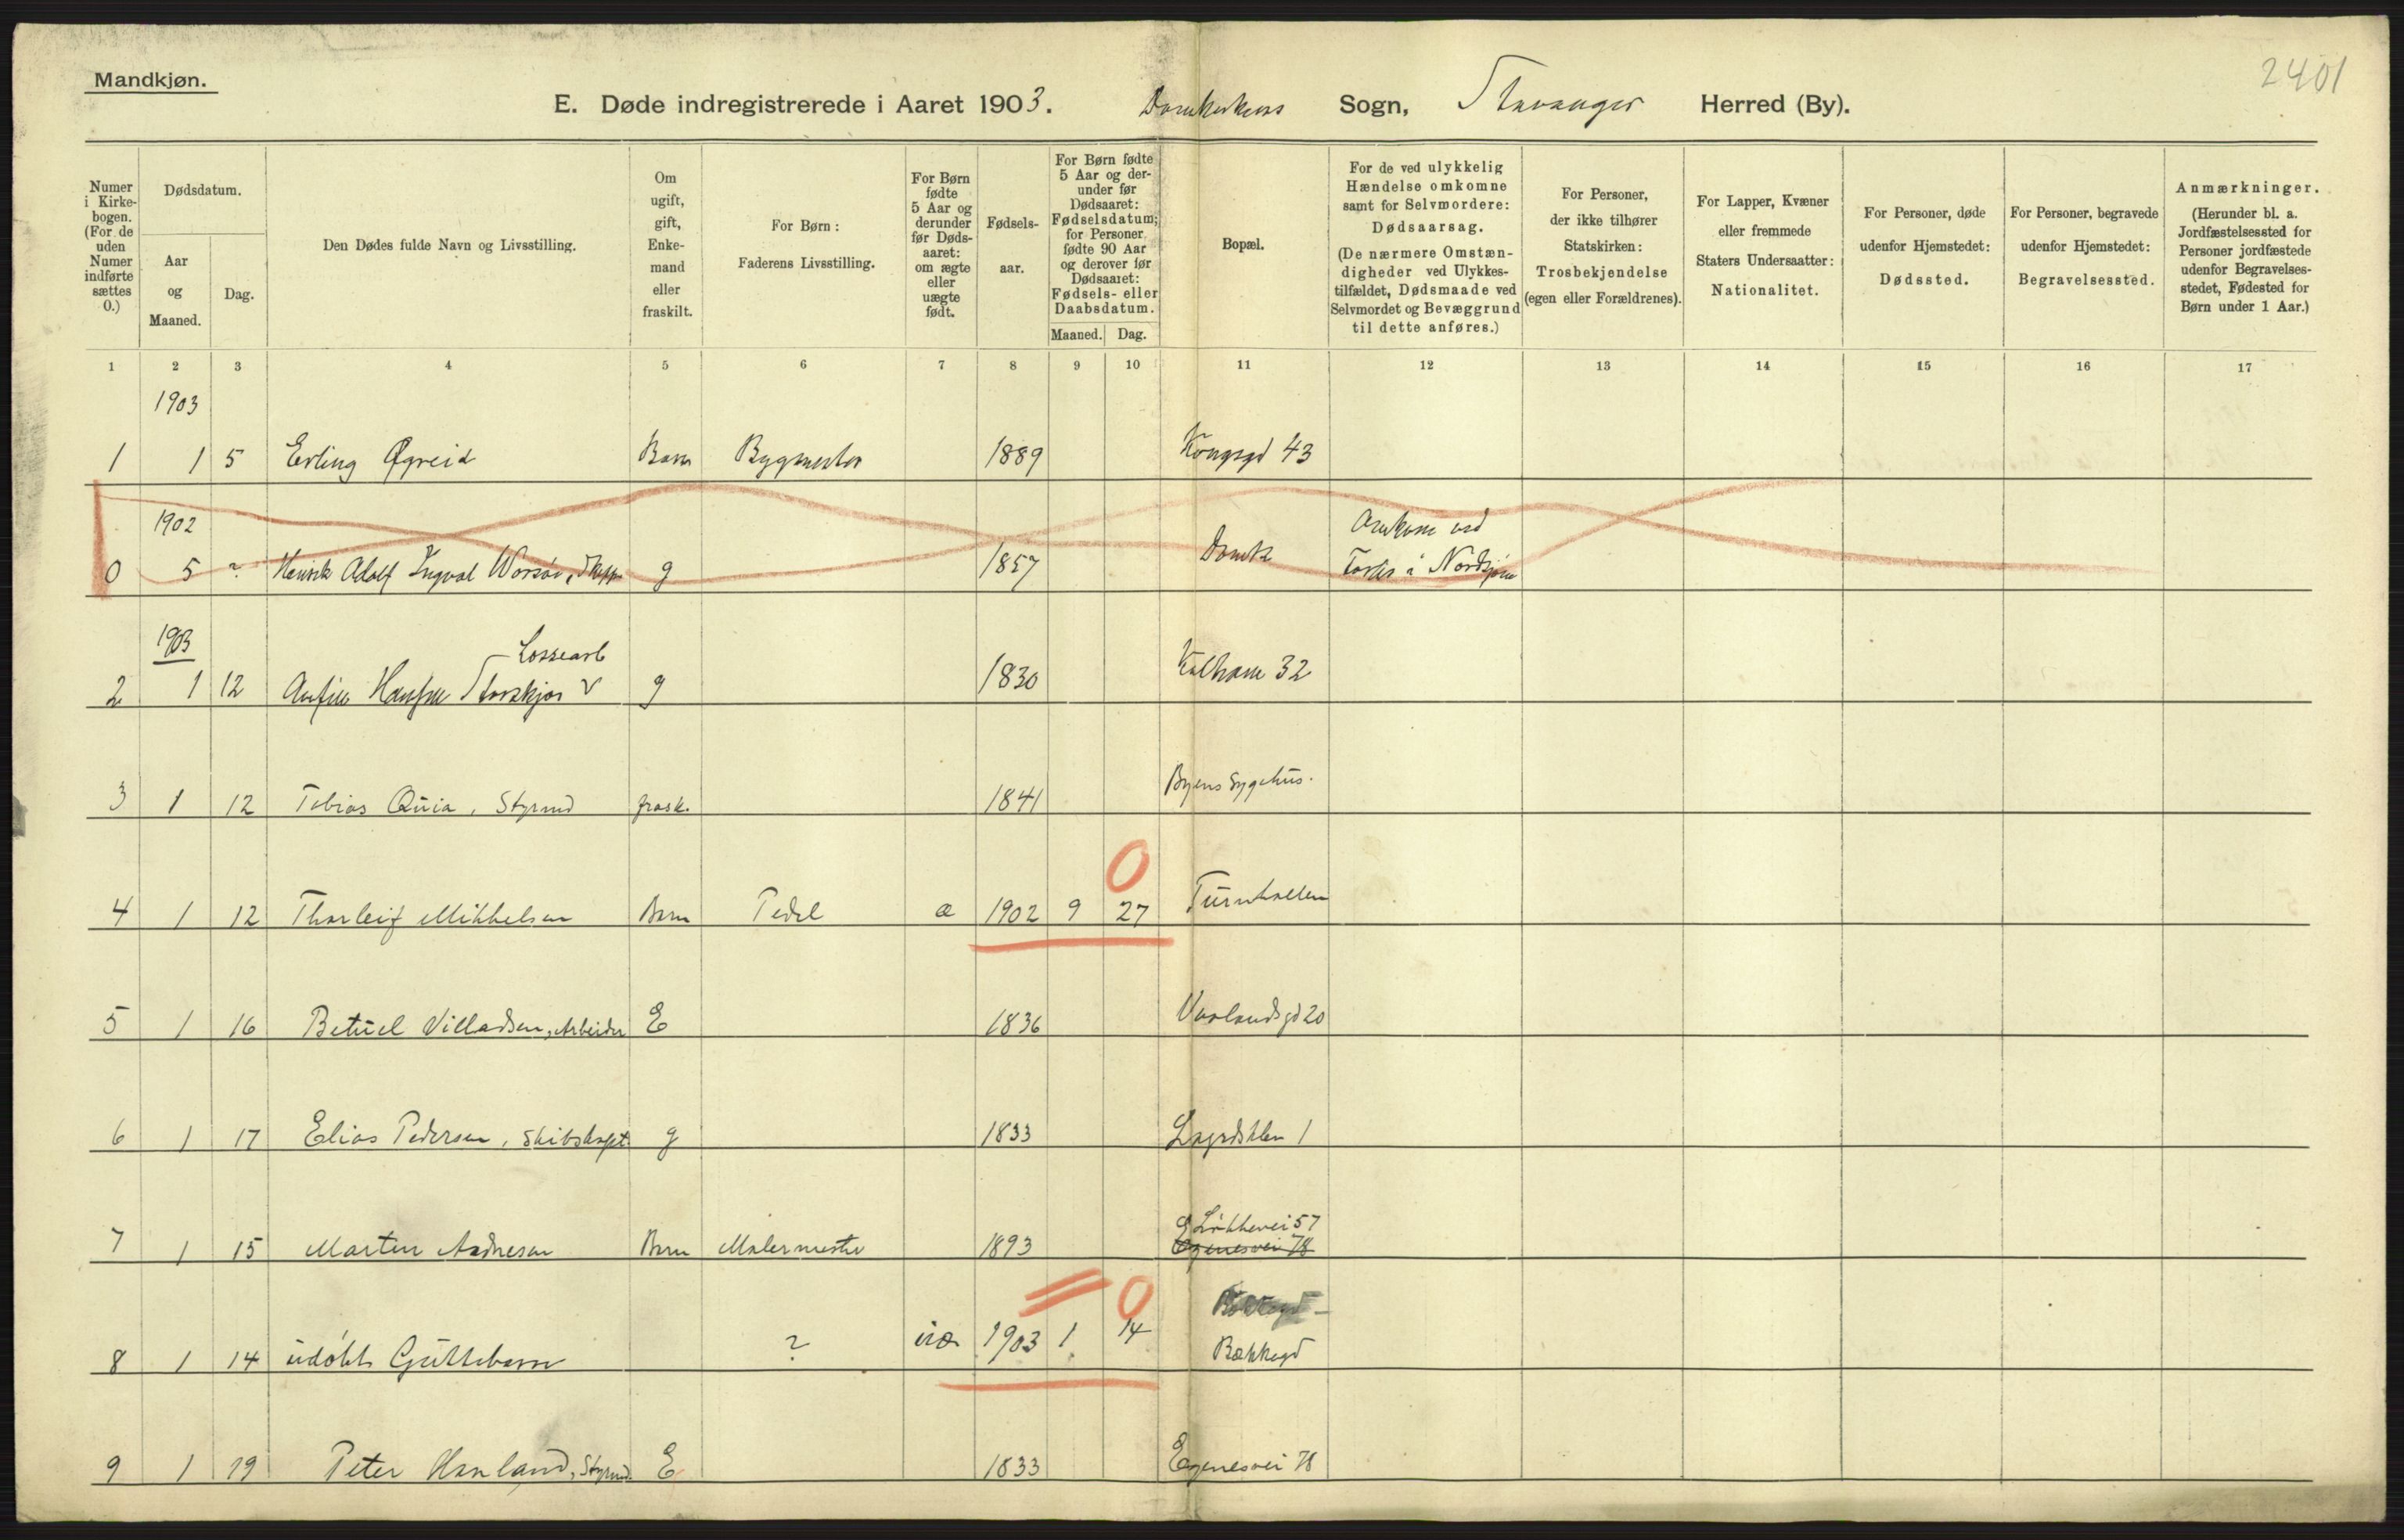 2401
Mandkjøn.
E. Døde indregistrerede i Aaret 1903. Domkirkens Sogn, Stavanger Herred (By).
Numer i Kirkebogen. (For de uden Numer indførte sættes 0.)
Dødsdatum.
Aar og Maaned.
Dag.
Den Dødes fulde Navn og Livsstilling.
Om ugift, gift, Enkemand eller fraskilt.
For Børn: Faderens Livsstilling.
For Børn fødte 5 Aar og derunder før Dødsaaret: om ægte eller uægte født.
Fødselsaar.
For Børn fødte 5 Aar og derunder før Dødsaaret: Fødselsdatum; for Personer fødte 90 Aar og derover før Dødsaaret: Fødsels- eller Daabsdatum.
Maaned. Dag.
Bopæl.
For de ved ulykkelig Hændelse omkomne samt for Selvmordere: Dødsaarsag. (De nærmere Omstændigheder ved Ulykkestilfældet, Dødsmaade ved Selvmordet og Bevæggrund til dette anføres.)
For Personer, der ikke tilhører Statskirken: Trosbekjendelse (egen eller Forældrenes).
For Lapper, Kvæner eller fremmede Staters Undersaatter: Nationalitet.
For Personer, døde udenfor Hjemstedet: Dødssted.
For Personer, begravede udenfor Hjemstedet: Begravelsessted.
Anmærkninger. (Herunder bl. a. Jordfæstelsessted for Personer jordfæstede udenfor Begravelsesstedet, Fødested for Børn under 1 Aar.)
1 2 3 4 5 6 7 8 9 10 11 12 13 14 15 16 17
1903
1 1 5 Erling Øgreid Barn Bygmester 1889 Kongsgd 43
1902
Omkom ved
0 5 ? Henrik Adolf Ingval g 1857 Domk Forlis i Nordsjøen
1903
Lossearb
2 1 12 Hansen Storskjær v g 1830 Kalham 32
3 1 12 Tobias Qvia, Styrmd frask. 1841 Byens Sygehus.
0
4 1 12 Thorleif Mikkelsen Barn Pedel æ 1902 9 27 Turnhallen
5 1 16 Betuel Villadsen, Arbeider E 1836 Vaalandsgd 20
6 1 17 Elias Pedersen, Skibskapt. g 1833 1
Løkkevei 57
7 1 15 Marten Andresen Barn Malermester 1893 Egenesvei 78
0
8 1 14 udøbt Guttebarn ? uæ 1903 1 14 Bækkegd
9 1 19 Peter Haaland, Styrmd. E 1833 Egenesvei 78